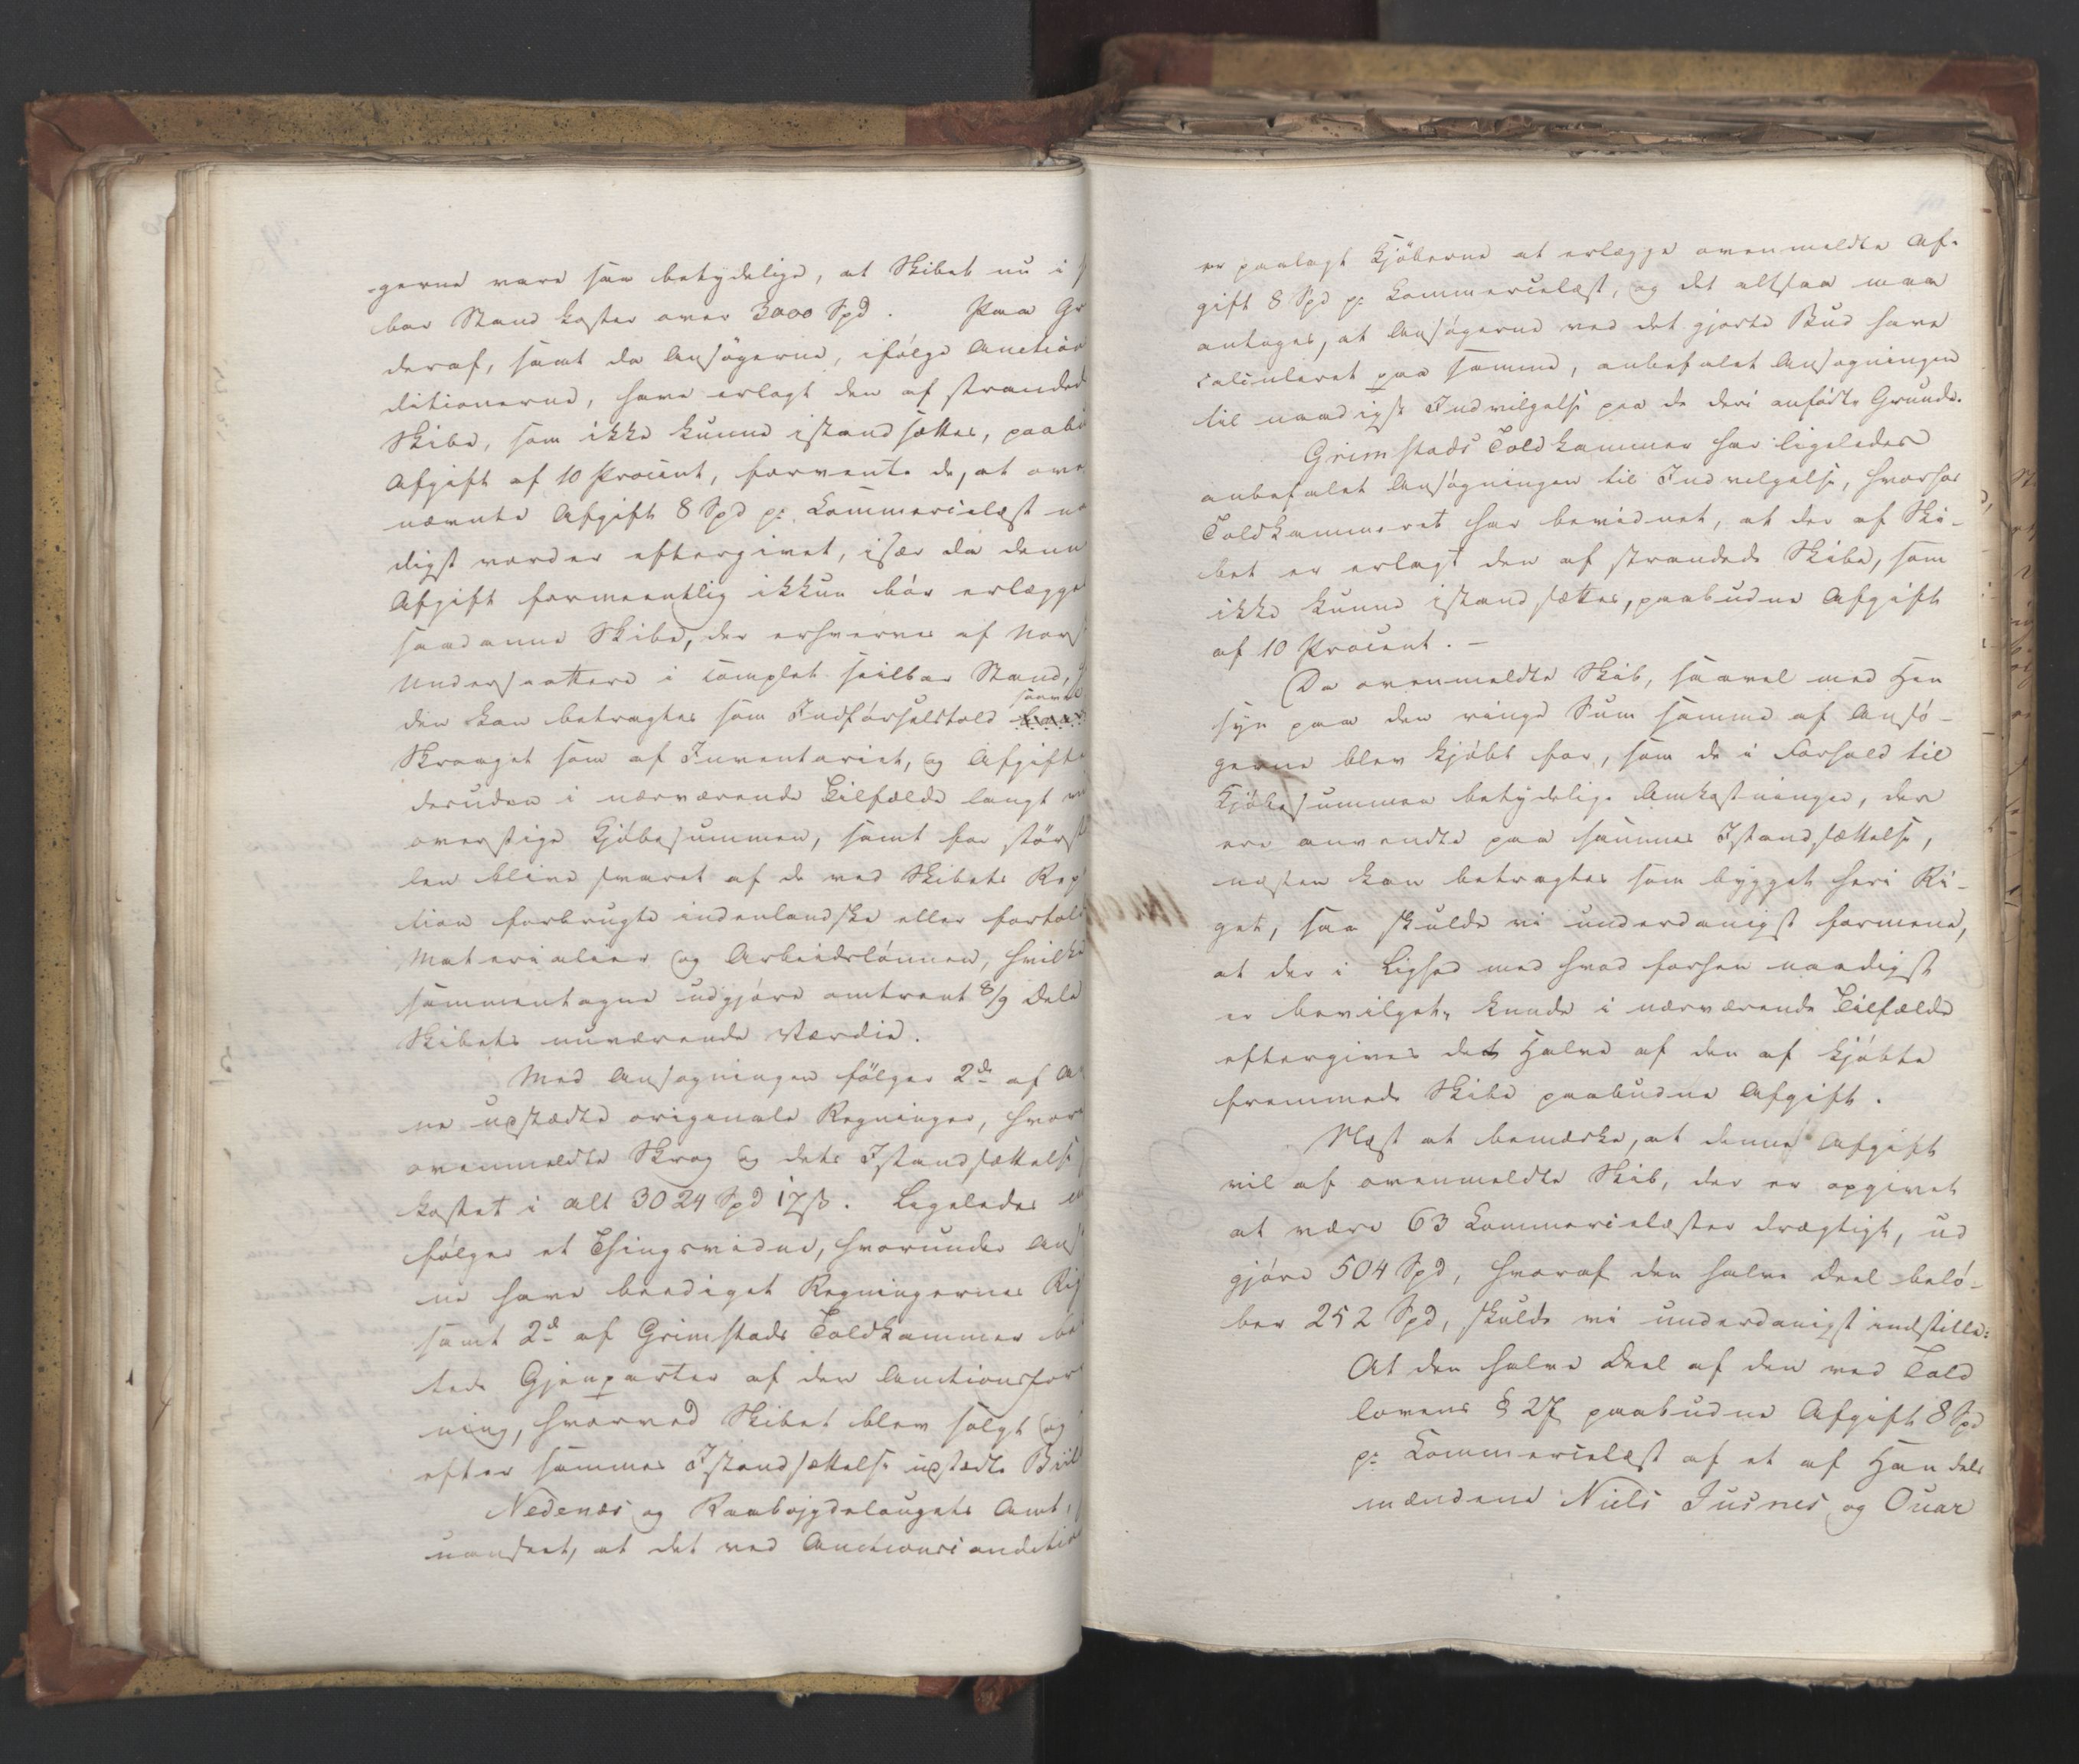 gerne vare saa betydelige, at Skibet nu i
bar Stand koster over 3000 Spd. Paa Gr
deraf, samt da Ansögerne, ifölge Auction
ditionerne, have erlagt den af strandede
Skibe, som ikke kunne istandsættes, paabu
Afgift af 10 Procent, forvente de, at oven
nævnte Afgift 8 Spd pr Commercelæst na
digst vorder eftergivet, især da denne
Afgift formeentlig ikkun bör erlægges
saadanne Skibe, der erhverves af Norske
Undersaatter i complet seilbar Stand,
den kan betragtes som Indförselstold saavel
Skroget som af Inventariet, og Afgiften
desuden i nærværende Tilfælde langt vil
overstige Kjöbesummen, samt for störste
len blive svaret af de ved Skibets Rep
tion forbrugte indenlandske eller fortold
Materialier og Arbeidslönnen, hvilke
sammentagne udgjöre omtrent 8/9 Dele
Skibets nuværende Værdie.
Med Ansögningen fölger 2de af A
ne udstædte originale Regninger, hvor
ovenmeldte Skrog og dets Istandsættelse
kostet i alt 3024 Spd 17 ß. Ligeledes
fölger et Thingsvidne, hvorunder Ans
ne have beediget Regningernes Rig
samt 2de af Grimstads Toldkammer be
tede Gjenparter af den Auctionsfor
ning, hvorved Skibet blev solgt og
efter sammes Istandsættelse udstædte Biil
Nedenæs og Raabøjgdelaugets Amt,
uanseet, at det ved Auctionsconditio
er paalagt Kjöberne at erlægge ovenmeldte Af-
gift 8 Spd pr Commercelæst, og det altsaa maa
antages, at Ansögerne ved det gjorte Bud have
calculeret paa samme, anbefalet Ansøgningen
til naadigst Indvilgelse paa de deri anförte Grunde.
Grimstads Toldkammer har ligeledes
anbefalet Ansögningen til Indvilgelse, hvorhos
Toldkammeret har bevidnet, at der af Ski-
bet er erlagt den af strandede Skibe, som
ikke kunne istandsættes, paabudne Afgift
af 10 Procent. –
Da ovenmeldte Skib, saavel med Hen
syn paa den ringe Sum samme af Ansö-
gerne blev kjöbt for, som de i Forhold til
Kjöbesummen betydelige Omkostninger, der
ere anvendte paa sammes Istandsættelse,
næsten kan betragtes som bygget heri Ri-
get, saa skulde vi underdanigst formene,
at der i Lighed med hvad forhen naadigst
er bevilget, kunde i nærværende Tilfælde
eftergives det Halve af den af kjöbte
fremmede Skibe paabudne Afgift.
Næst at bemærke, at denne Afgift
vil af ovenmeldte Skib, der er opgivet
at være 63 Commercelæster drægtigt, ud
gjöre 504 Spd, hvoraf den halve Deel belö-
ber 252 Spd, skulde vi underdanigst indstille:
At den halve Deel af den ved Told
lovens § 27 paabudne Afgift 8 Spd
pr Commercelæst af et af Handels
mændene Niels Jusnes og Ouar